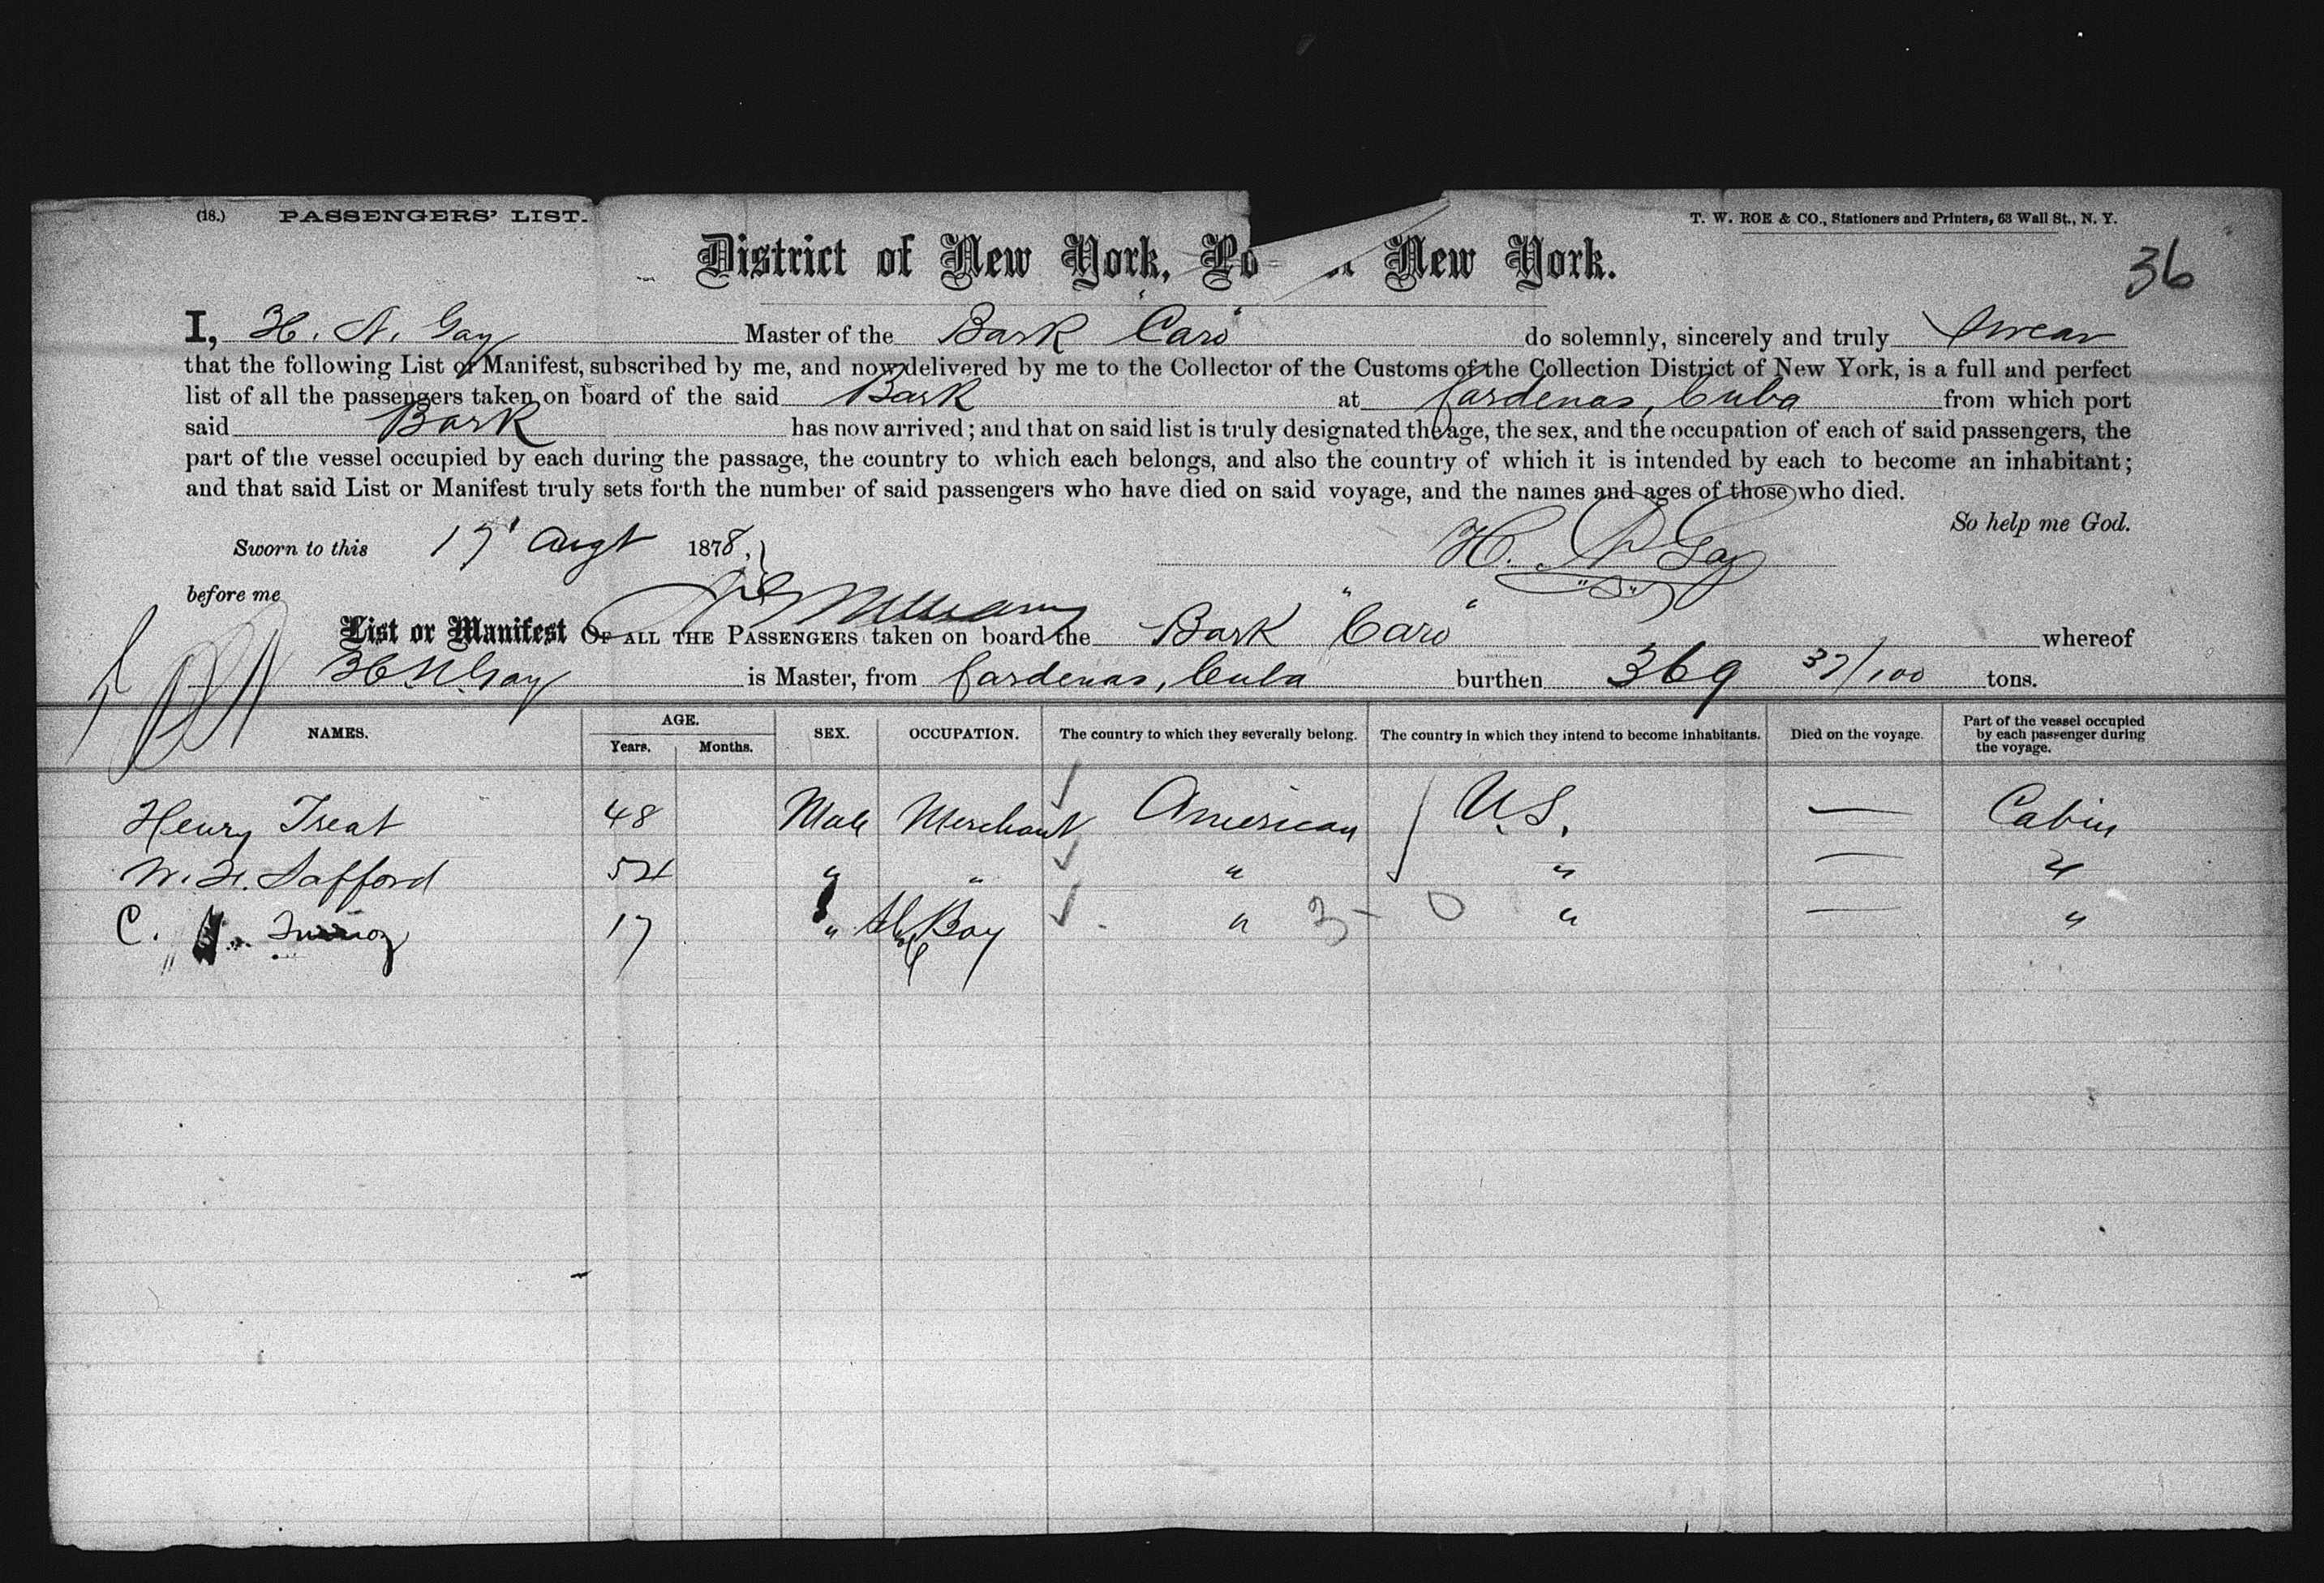 (18.) PASSENGERS' LIST.
T. W. ROE & CO., Stationers and Printers, 63 Wall St., N. Y.
District of New York, Po New York.
36
I, H. N. Gay Master of the Bark "Caro" do solemnly, sincerely and truly swear
that the following List or Manifest, subscribed by me, and now delivered by me to the Collector of the Customs of the Collection District of New York, is a full and perfect
list of all the passengers taken on board of the said Bark at Cardenas, Cuba from which port
said Bark has now arrived; and that on said list is truly designated the age, the sex, and the occupation of each of said passengers, the
part of the vessel occupied by each during the passage, the country to which each belongs, and also the country of which it is intended by each to become an inhabitant;
and that said List or Manifest truly sets forth the number of said passengers who have died on said voyage, and the names and ages of those who died.
So help me God.
Sworn to this 17' Augt 1878,
H. N. Gay
before me
List or Manifest OF ALL THE PASSENGERS taken on board the Bark "Caro" whereof
H N Gay is Master, from Cardenas, Cuba burthen 369 37/100 tons.
NAMES. AGE. Years. Months. SEX. OCCUPATION. The country to which they severally belong. The country in which they intend to become inhabitants. Died on the voyage. Part of the vessel occupied by each passenger during the voyage.
Henry Treat 48 Male Merchant American U.S. — Cabin
W. H. Safford 54 " " " " — "
C. 17 " Boy " 3 - 0 " — "